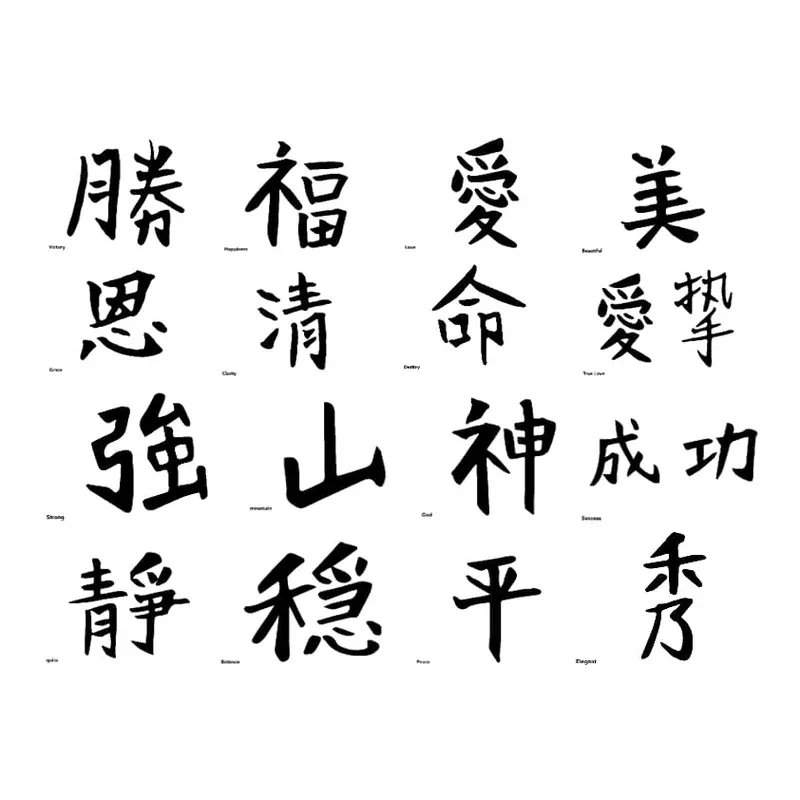 勝 福 愛 美
Victory Happiness Love Beautiful
恩 清 命 愛 挚
Grace Clarity Destiny True Love
強 山 神 成 功
Strong mountain God Success
靜 穏 平 秀
quite Balance Peace Elegant